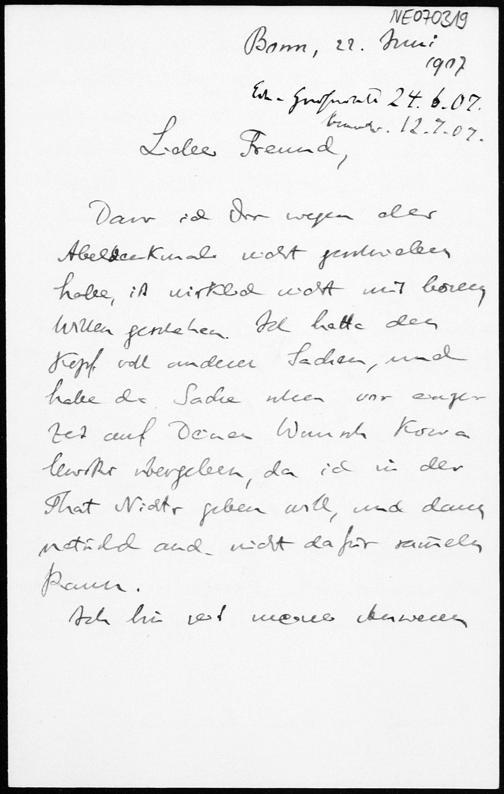 NE070319
Bonn, 22. Juni
1907
24.6.07.
12.7.07.
Lieber Freund,
Dass ich Dir wegen des
Abeldenkmals nicht geschrieben
habe, ist wirklich nicht mit bösem
Willen geschehen. Ich hatte den
Kopf voll anderer Sachen, und
habe die Sache schon vor einiger
Zeit auf Deinen Wunsch Kowa
lewski übergeben, da ich in der
That Nichts geben will, und dann
natürlich auch nicht dafür sammeln
kann.
Ich bin seit meiner Anwesen